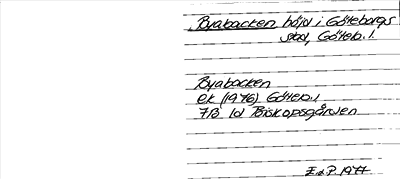 Byabacken höjd i Göteborgs
stad, Göteb. l.
Byabacken
ek (1976) Göteb. l
7B 1d Biskopsgården
E o P 1977